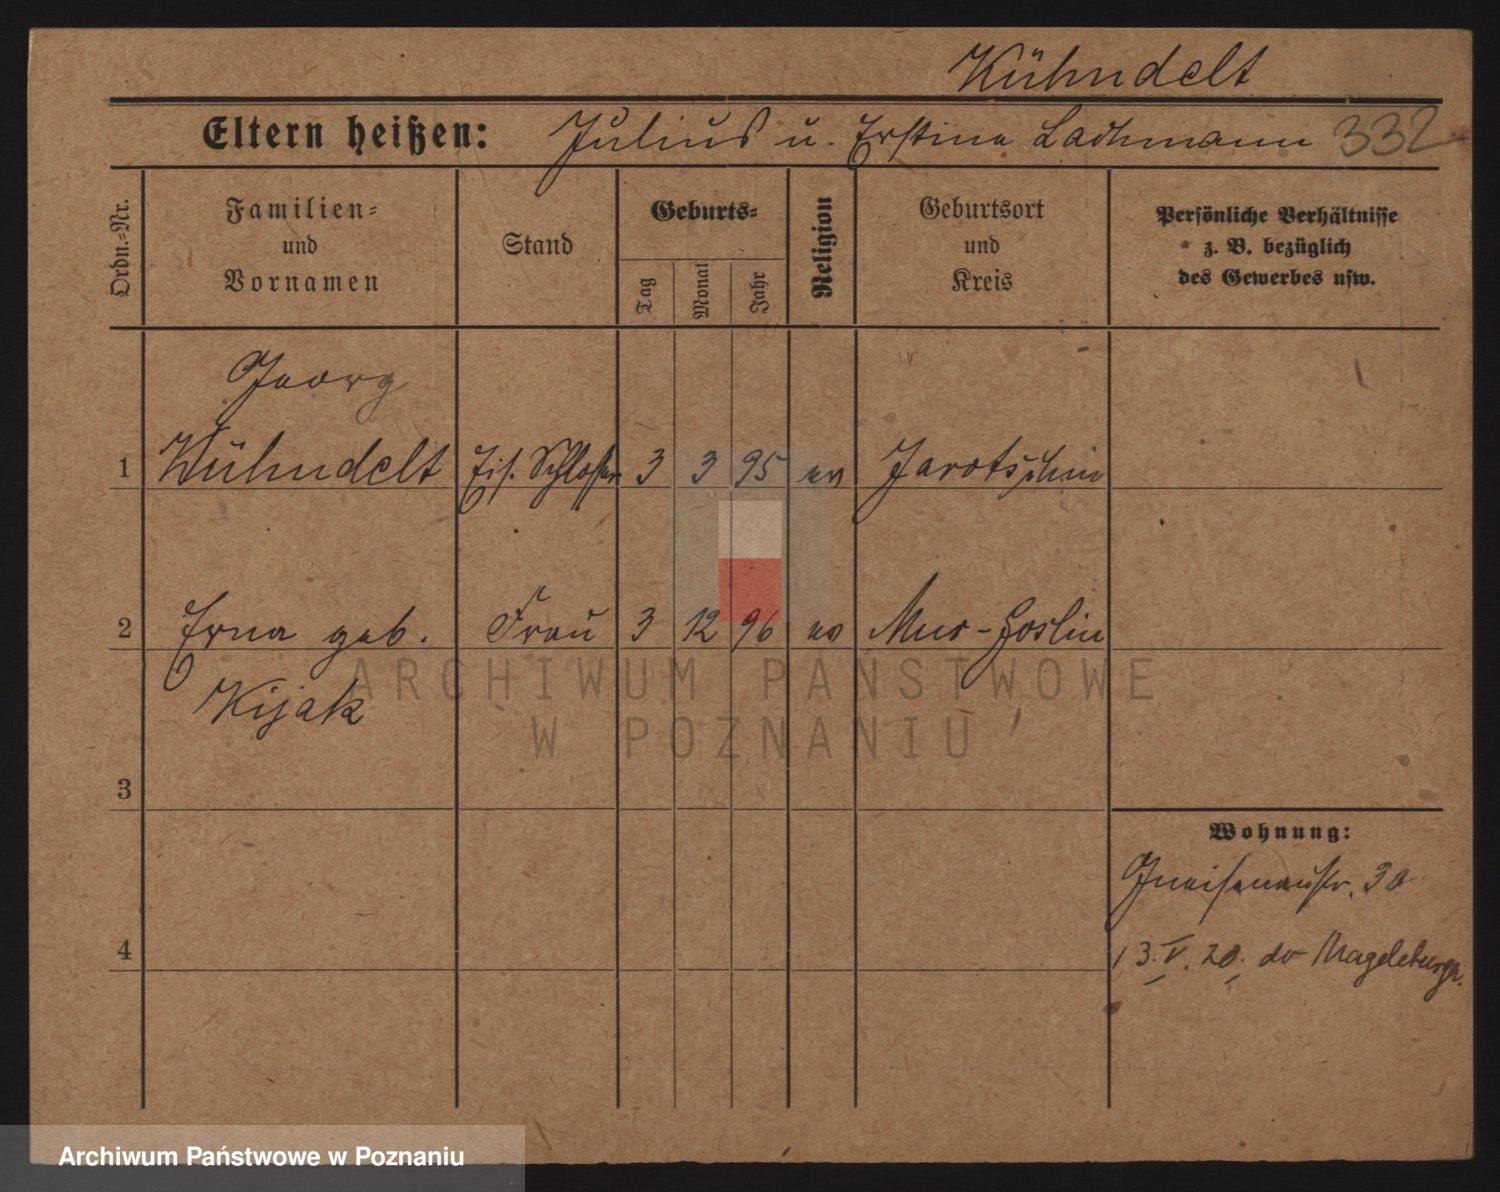 Kühndelt
Eltern heißen: Julius u. Erstina Lachmann 332
Ordn.-Nr.
Familien-
und
Vornamen
Stand
Geburts-
Tag
Monat
Jahr
Religion
Geburtsort
und
Kreis
Persönliche Verhältnisse
z. B. bezüglich
des Gewerbes usw.
Georg
1 Kühndelt Eis. Schlosser 3 3 95 ev Jarotschin
2 Erna geb. Frau 3 12 96 ev Mur-Goslin
Kijak
ARCHIWUM PAŃSTWOWE
W POZNANIU
3
Wohnung:
Gneisenaustr. 3a
4
13.V.20. do Magdeburga.
Archiwum Państwowe w Poznaniu